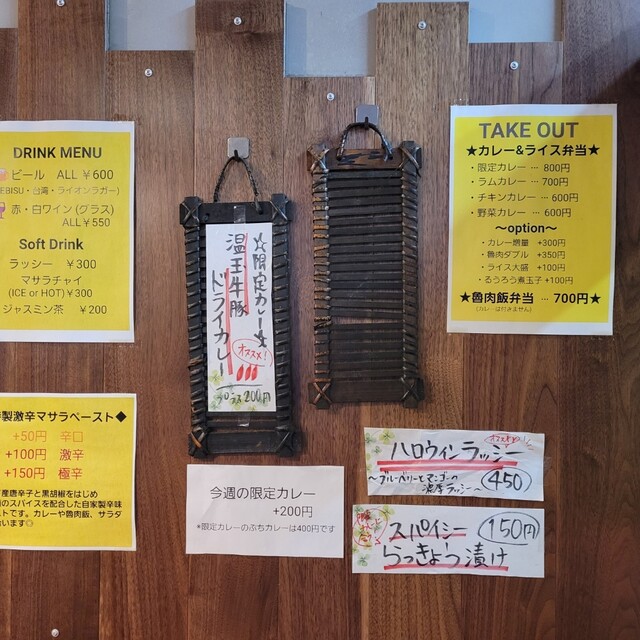 DRINK MENU
ビール ALL ¥600
EBISU・台湾・ライオンラガー)
赤・白ワイン (グラス)
ALL¥550
Soft Drink
ラッシー ¥300
マサラチャイ
(ICE or HOT)¥300
ジャスミン茶 ¥200
製激辛マサラペースト◆
+50円 辛口
+100円 激辛
+150円 極辛
産唐辛子と黒胡椒をはじめ
のスパイスを配合した自家製辛味
ストです。カレーや魯肉飯、サラダ
います◎
☆限定カレー☆
温玉牛豚
ドライカレー
オススメ!
プラス200円
今週の限定カレー
+200円
*限定カレーのぷちカレーは400円です
TAKE OUT
★カレー&ライス弁当★
・限定カレー … 800円
・ラムカレー … 700円
・チキンカレー … 600円
・野菜カレー … 600円
〜option〜
・カレー増量 +300円
・魯肉ダブル +350円
・ライス大盛 +100円
・るうろう煮玉子 +100円
★魯肉飯弁当 … 700円★
(カレーは付きません)
オススメ!
ハロウィンラッシー
〜ブルーベリーとマンゴーの
濃厚ラッシー〜
450
スパイシー
らっきょう漬け
150円